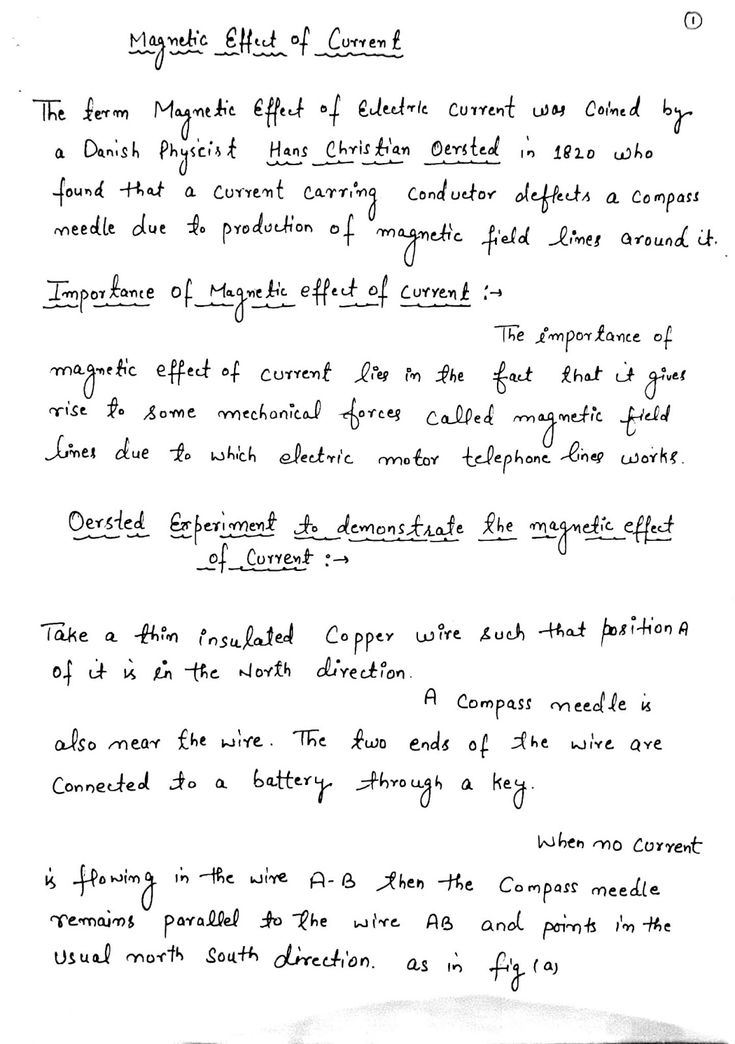 ①
Magnetic Effect of Current
The term Magnetic Effect of Eelectric current was coined by
a Danish Physcist Hans Christian Oersted in 1820 who
found that a current carring conductor deffects a compass
needle due to production of magnetic field lines around it.
Importance of Magnetic effect of current :→
The importance of
magnetic effect of current lies in the fact that it gives
rise to some mechanical forces called magnetic field
lines due to which electric motor telephone lines works.
Oersted Experiment to demonstrate the magnetic effect
of Current :→
Take a thin insulated Copper wire such that position A
of it is in the North direction.
A compass needle is
also near the wire. The two ends of the wire are
Connected to a battery through a key.
When no current
is flowing in the wire A-B then the Compass needle
remains parallel to the wire AB and points in the
usual north south direction. as in fig (a)